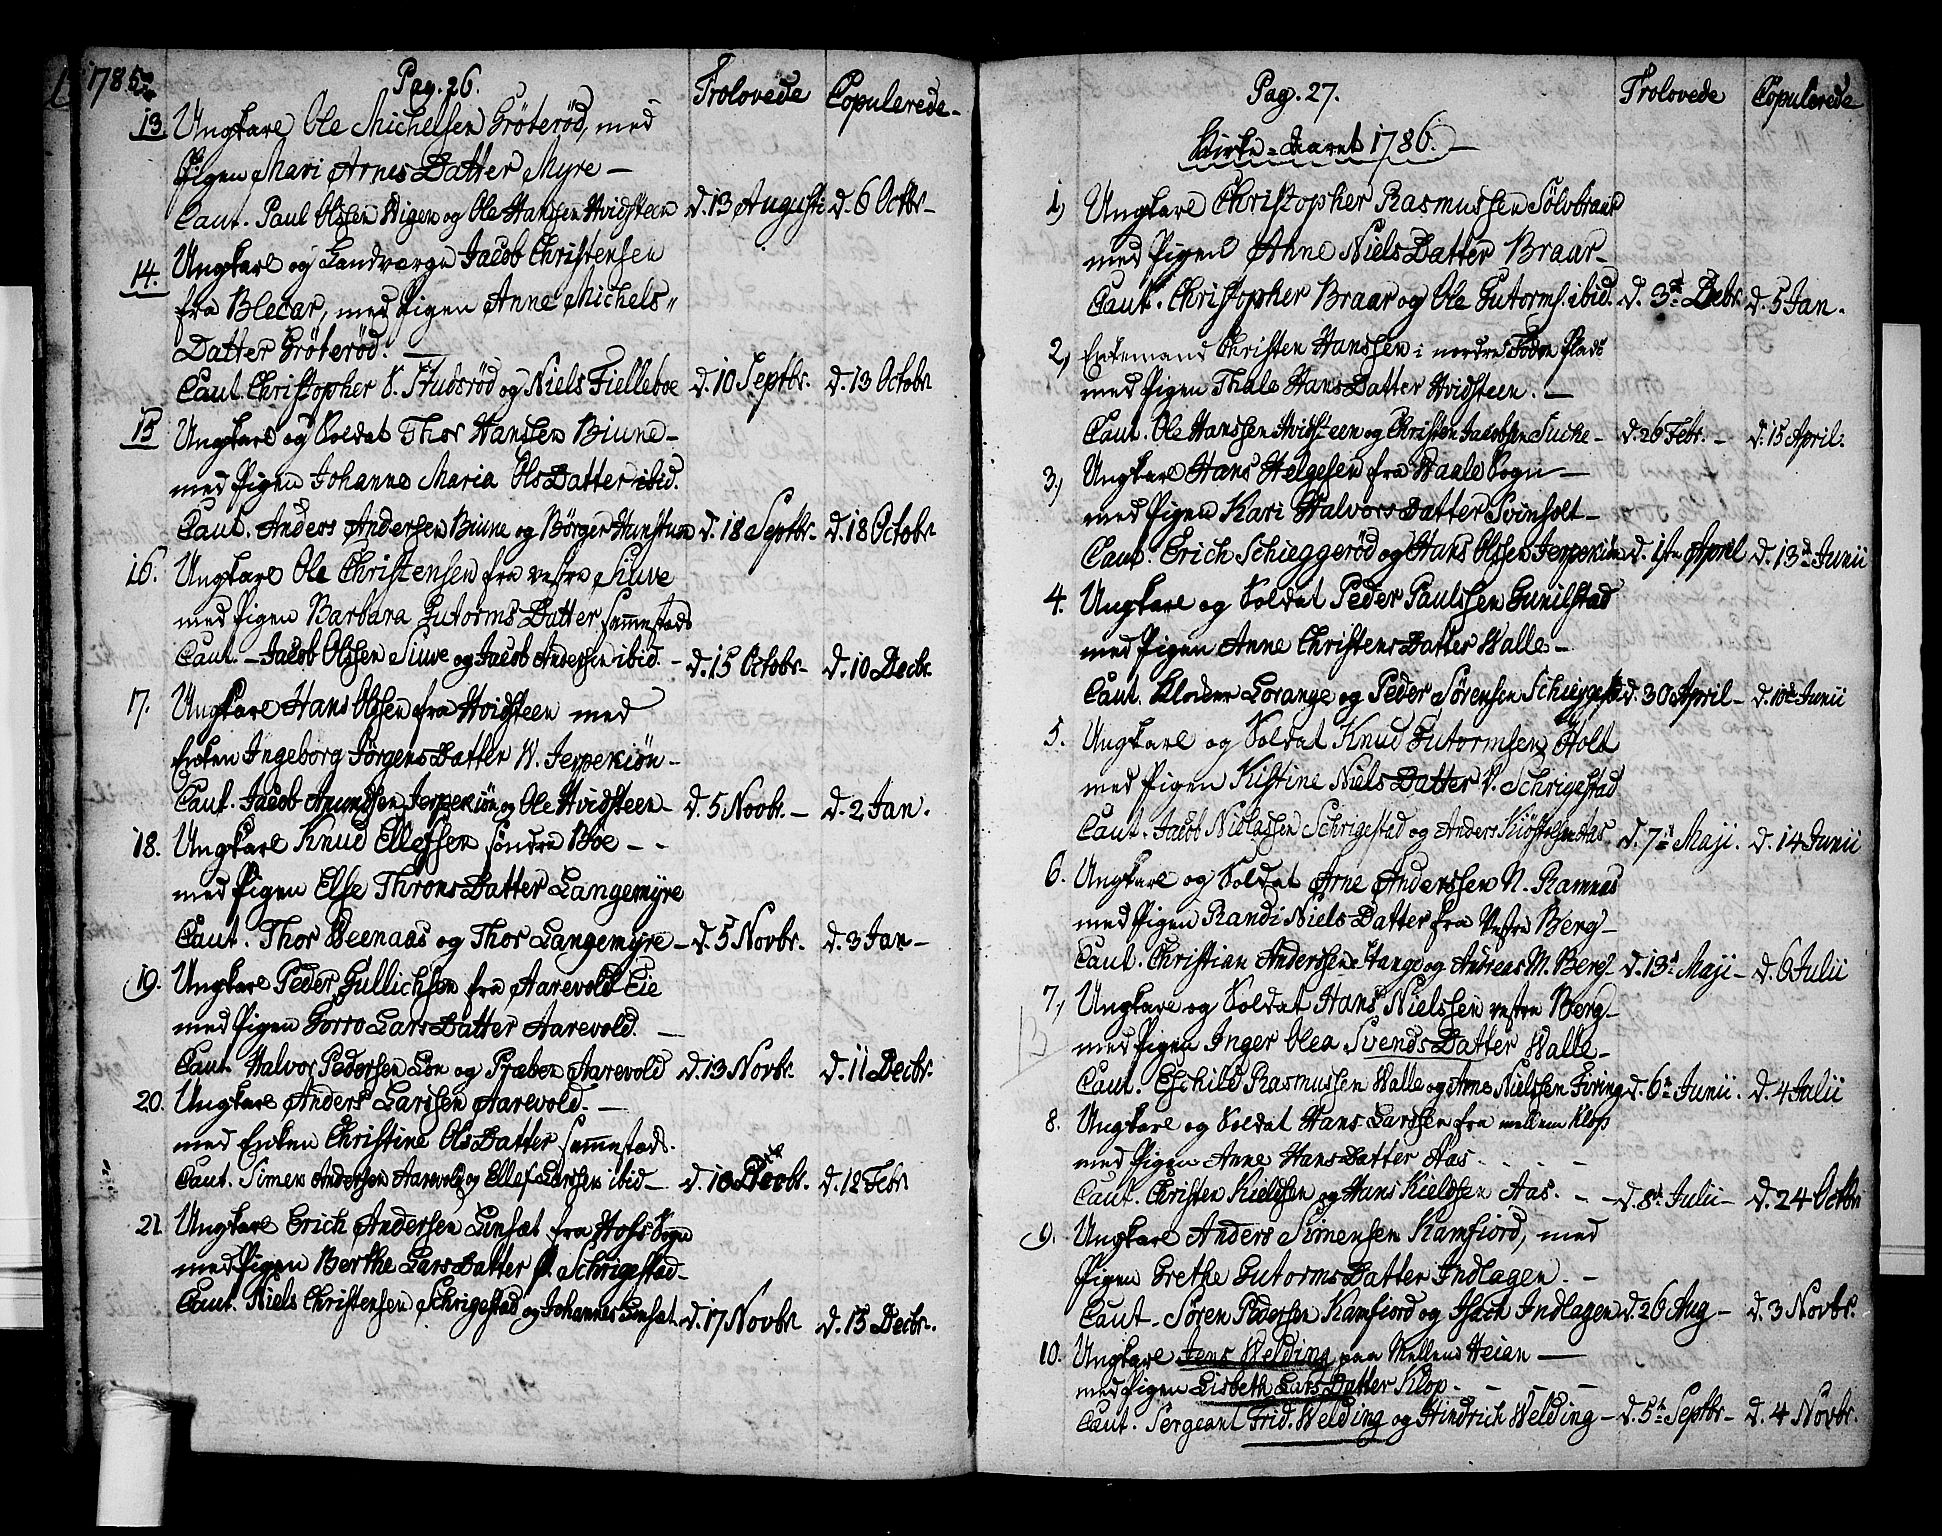 1785
Pag. 26.
Trolovede
Copulerede
13. Ungkarl Ole Michelsen Gröteröd, med
Pigen Mari Arnes Datter Myre
Caut. Paul Olssen Wigen og Ole Hanssen Hvidsteen d. 13 Augusti d. 6 Octbr.
14. Ungkarl og Landværge Jacob Christensen
fra Blecar, med Pigen Anne Michels
Datter Gröteröd.
Caut. Christopher S. Studsröd og Niels Fielleboe d. 10 Septbr. d. 13 Octobr
15 Ungkarl og Soldat Thor Hanssen Biune
med Pigen Johanne Maria Ols Datter ibid.
Caut. Anders Andersen Biune og Börger d. 18 Septbr. d. 18 Octobr
16. Ungkarl Ole Christensen fra vestre Siuve
med Pigen Barbara Gutorms Datter sammestæds
Caut. Jacob Olssen Siuve og Jacob Andersen ibid. d. 15 Octobr d. 10 Decbr.
17. Ungkarl Hans Olssen fra Hvidsteen med
Enken Ingeborg Jörgens Datter W. Jerpekiön
Caut. Jacob Amundsen Jerpekiön og Ole Hvidsteen d. 5 Novbr. d. 2 Jan.
18. Ungkarl Knud Ellefsen söndre Boe
med Pigen Else Throns Datter Langemyre
Caut. Thor Veenaas og Thor Langemyre d. 5 Novbr. d. 3 Jan
19. Ungkarl Peder Gullichsen fra Aarevold Eie
med Pigen Gorro Lars Datter Aarevold.
Caut. Halvor Pedersen Lön og Præben Aarevold d. 13 Novbr. d. 11 Decbr.
20. Ungkarl Anders Larssen Aarevold.
med Enken Christine Ols Datter sammestæds.
Caut. Simen Andersen Aarevold og Ellef Larssen ibid d. 10 Decbr. d. 12 Febr
21. Ungkarl Erich Andersen Linsæt fra Hofs Sogn
med Pigen Berthe Lars Datter Ö. Schrigestad
Caut. Niels Christensen Schrigestad og Johannes Linsæt d. 17 Novbr d. 15 Decbr.
Pag. 27.
Trolovede
Copulerede
Kirke-Aaret 1786.
1) Ungkarl Christopher Rasmussen Sölvbraar
med Pigen Anne Niels Datter Braar
Caut. Christopher Braar og Ole Gutorms. ibid. d. 3d Debr. d. 5 Jan.
2) Enkemand Christen Hanssen i nordre Födre Plads
med Pigen Thale Hans Datter Hvidsteen.
Caut. Ole Hanssen Hvidsteen og Christen Jacobsen Suche d. 26 Febr. d. 15 April.
3) Ungkarl Hans Helgesen fra Waale Sogn
med Pigen Kari Halvors Datter Svinholt
Caut. Erich Schieggeröd og Hans Olssen Jerpekiön d. 1ste April d. 13d Junii
4. Ungkarl og Soldat Peder Paulssen Gunilstad
med Pigen Anne Christens Datter Walle
Caut. Lorange og Peder Sörensen d. 30 April d. 10d Junii
5. Ungkarl og Soldat Knud Gutormsen Holt
med Pigen Kistine Niels Datter V. Schrigestad
Caut. Jacob Niclassen Schrigestad og Anders d. 7d Maji. d. 14 Junii
6. Ungkarl og Soldat Arne Anderssen N. Ramnes
med Pigen Randi Niels Datter fra Vestre Berg
Caut. Christian Anderssen Stange og Andreas M. Berg d. 13d Maji d. 6 Julii
7) Ungkarl og Soldat Hans Nielssen vestre Berg
med Pigen Inger Olea Svends Datter Walle
Caut. Eschild Rasmussen Walle og Arne Nielssen Firing d. 6d Junii. d. 4 Julii
8. Ungkarl og Soldat Hans Larssen fra mellem Klop
med Pigen Anne Hans Datter Aas.
Caut. Christen Kieldsen og Hans Kieldsen Aas. d. 8d Julii d. 24 Octbr
9. Ungkarl Anders Simensen Kamfiord, med
Pigen Grethe Gutorms Datter Indlagen.
Caut. Sören Pedersen Kamfiord og Isach Indlagen d. 26 Aug d. 3 Novbr.
10. Ungkarl Jens Welding paa Mellend Heian
med Pigen Lisbeth Lars Datter Klop.
Caut. Sergeant Frid. Welding og Hindrich Welding d. 5t Septbr d. 4 Novbr.